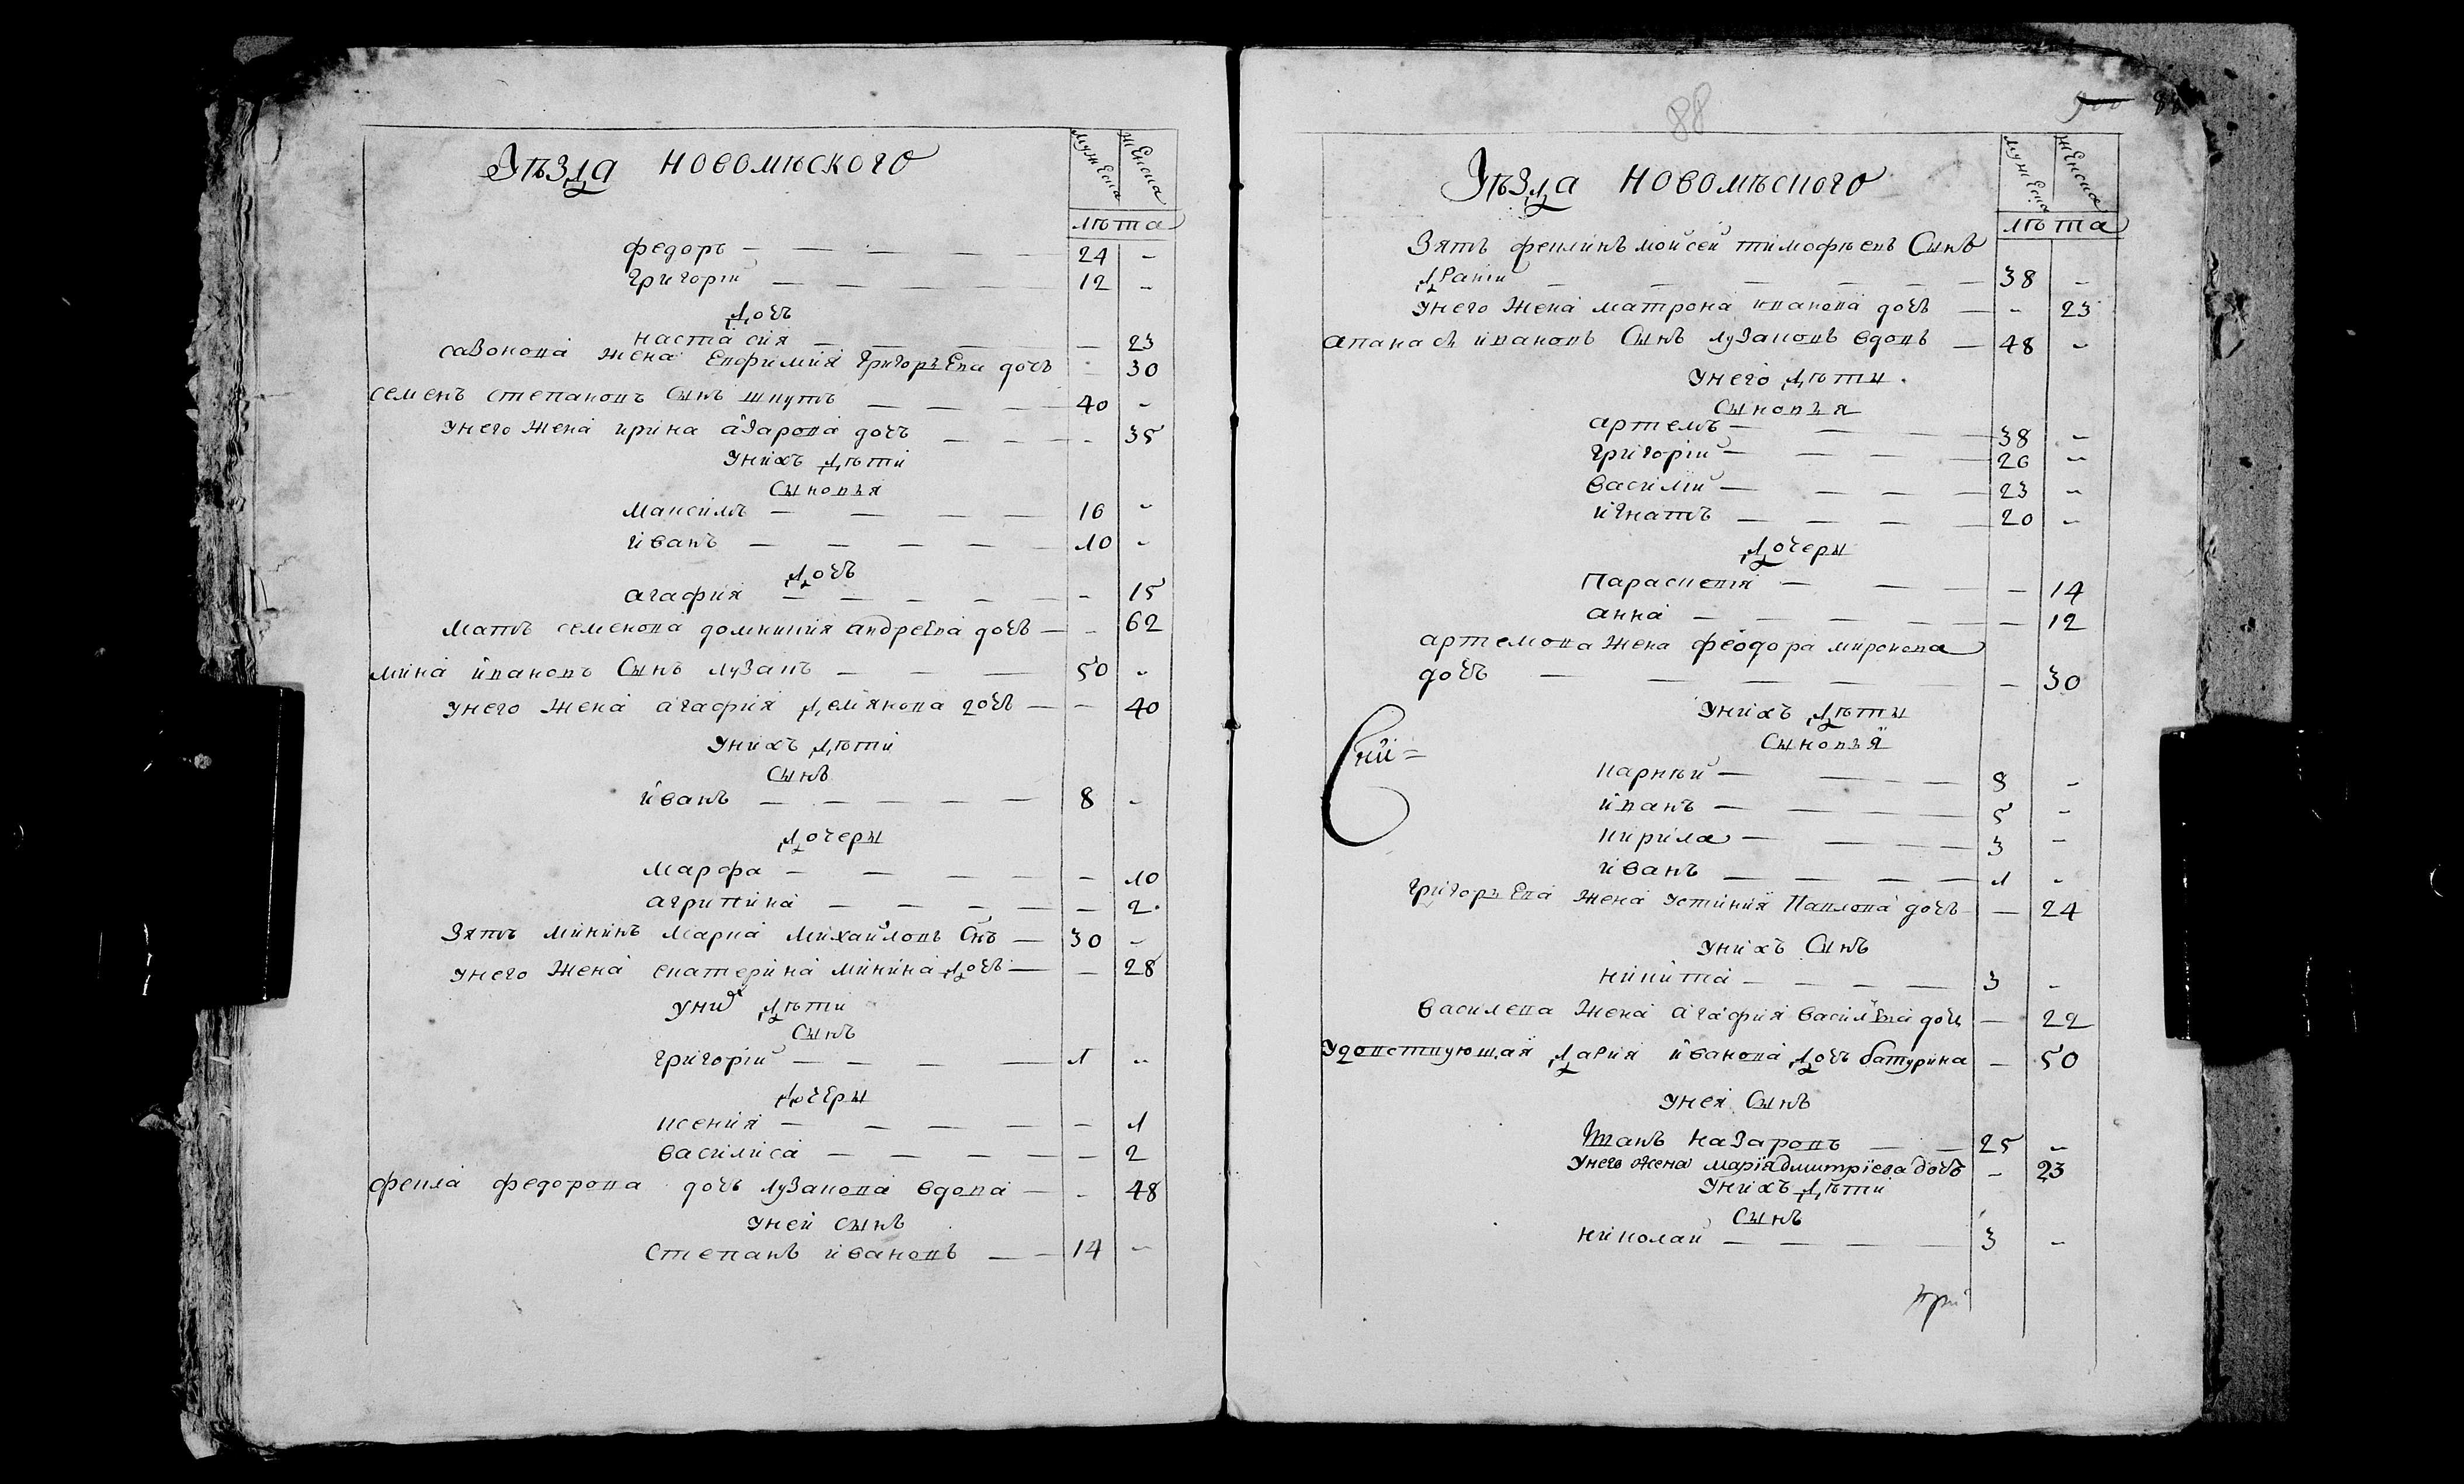 Уѣзда новомѣского
мужеска
женска
лѣта
федоръ — 24 -
григорій — 12 -
Дочъ
настасия — - 23
савонова жена евфимия григоръева дочъ - 30
семенъ степановъ сынъ шкутъ — 40 -
унего жена ирина азарова дочъ — - 35
унихъ дѣти
сыновъя
максимъ — 16 -
иванъ — 10 -
дочъ
агафия — - 15
матъ семенова домникия андреева дочъ — - 62
мина ивановъ сынъ лузанъ — 50 -
унего жена агафия демянова дочъ — - 40
унихъ дѣти
сынъ
иванъ — 8 -
дочеры
марфа — - 10
агрипина — - 2
зятъ мининъ марка михайловъ снъ — 30 -
унего жена екатерина минина дочъ — - 28
уних дѣти
сынъ
григорій — 1 -
дочеры
ксения — - 1
василиса — - 2
фекла федорова дочъ лузанова вдова — - 48
уней сынъ
степанъ ивановъ — 14 -
88
88
Уѣзда новомѣского
мужеска
женска
лѣта
Зятъ феклинъ мойсей тимофѣевъ Сынъ
— 38 -
унего жена матрона иванова дочъ — - 23
апанасъ ивановъ Сынъ лузановъ вдовъ — 48 -
унего дѣты
сыновъя
артемъ — 38 -
григорій — 26 -
василій — 23 -
игнатъ — 20 -
дочеры
параскевия — - 14
анна — - 12
артемова жена феодора миронова
дочъ — - 30
унихъ дѣты
сыновъя
карнѣй — 8 -
иванъ — 5 -
кирила — 3 -
иванъ — 1 -
григоръева жена устиния павлова дочъ — - 24
унихъ Сынъ
никита — 3 -
василева жена агафия василева дочъ — - 22
удовствующая дария иванова дочъ батурина — - 50
унея Сынъ
иванъ назаровъ — 25 -
унего жена марія дмитрієва дочъ - 23
унихъ дѣти
сынъ
николай — 3 -
при